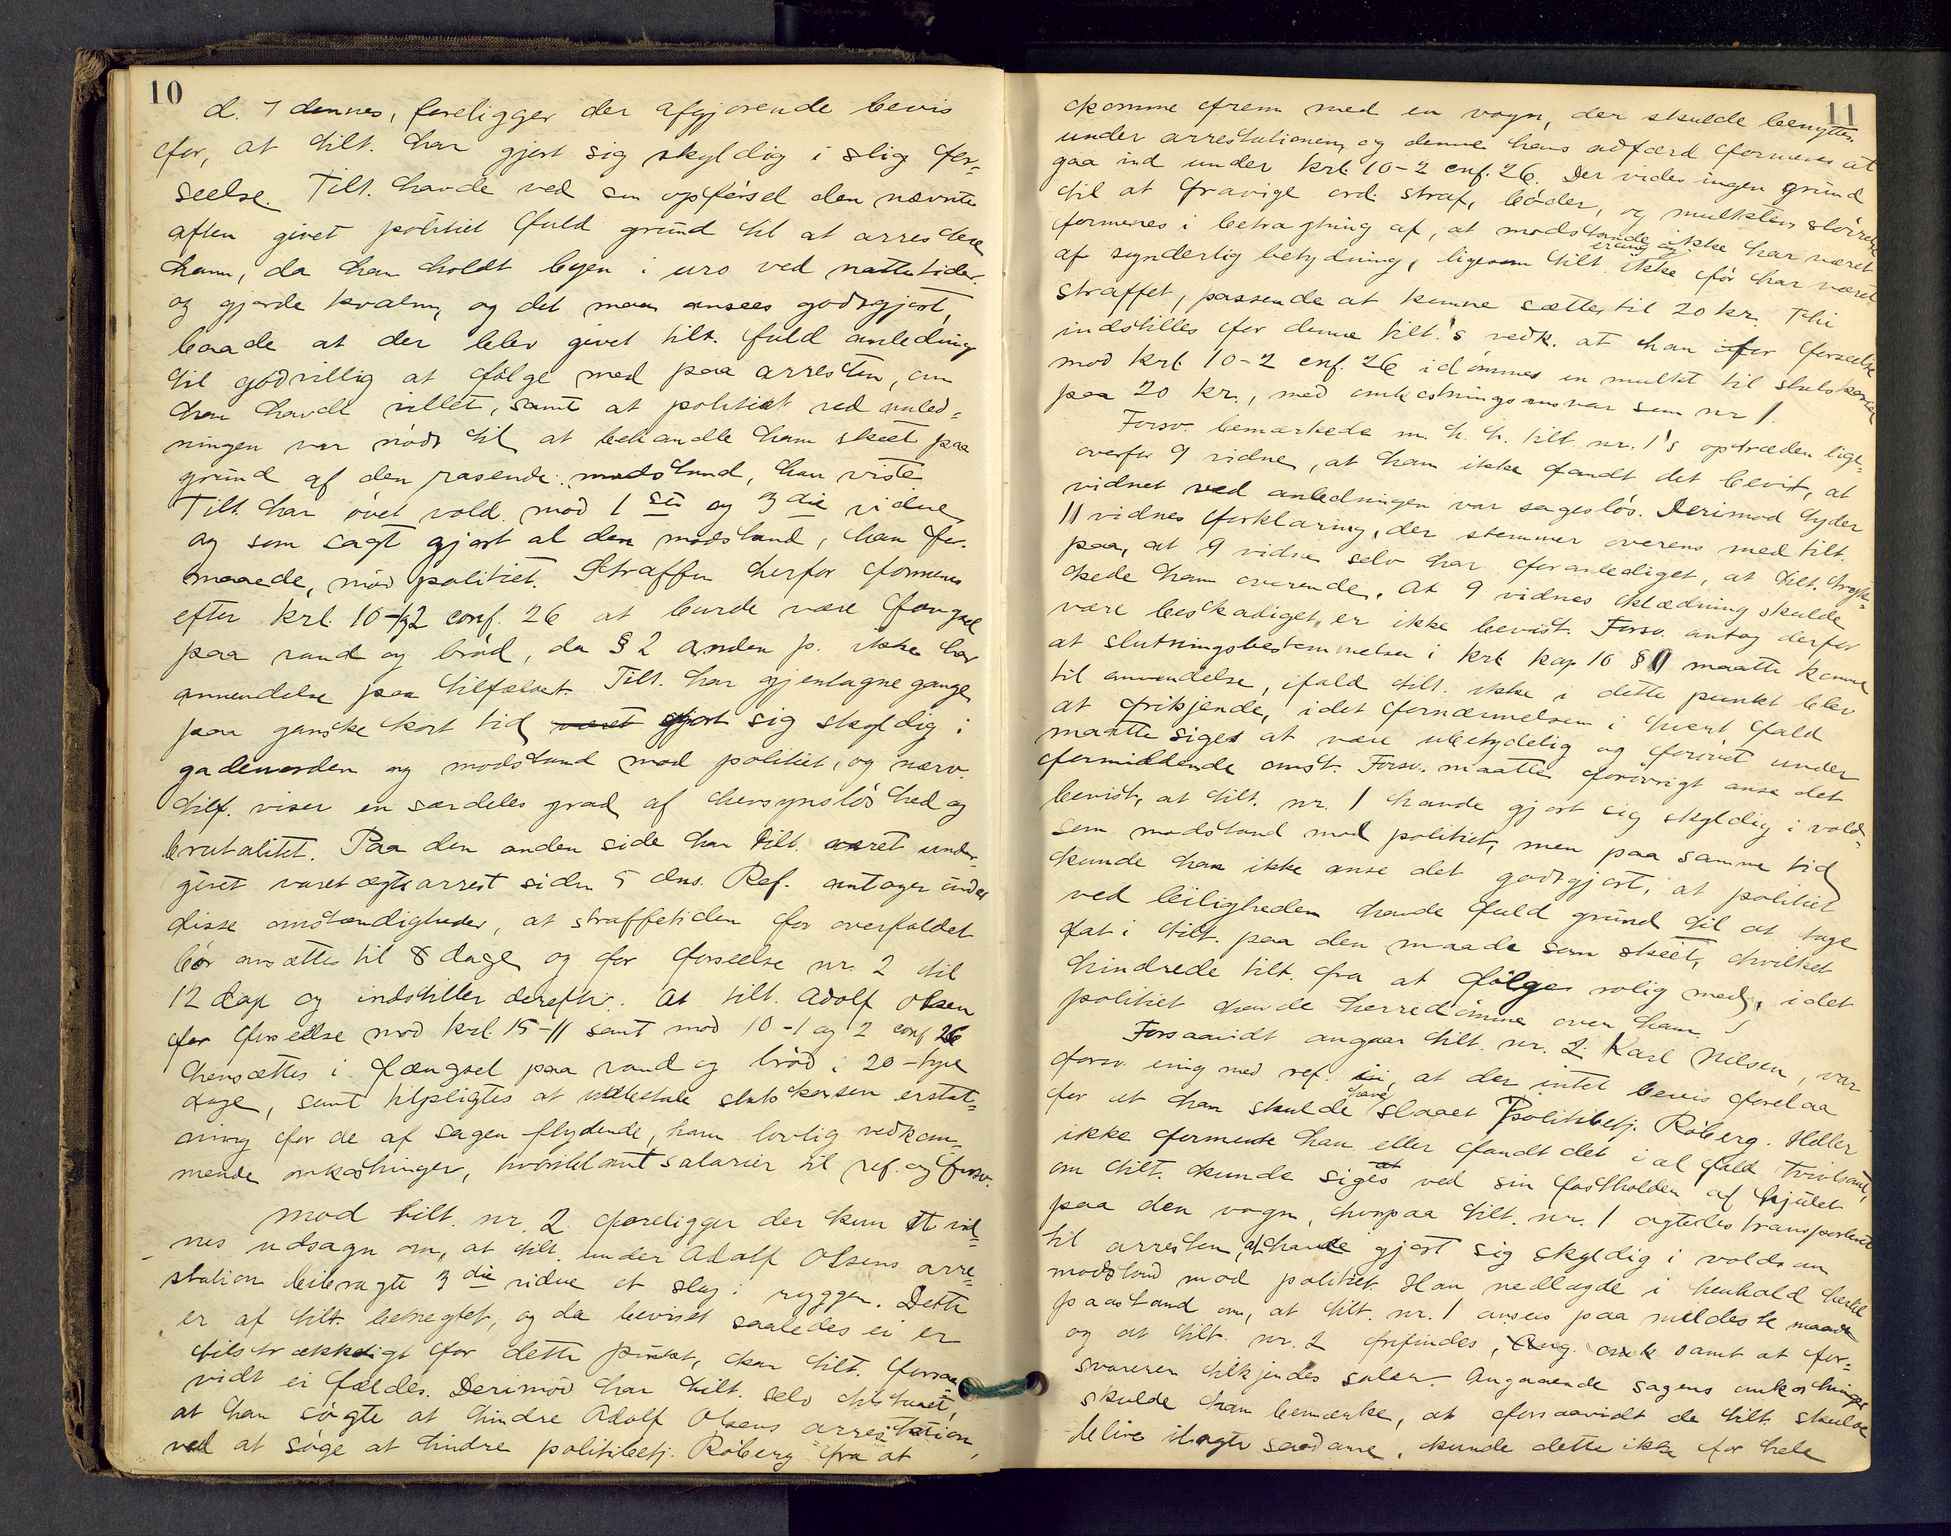 10
d. 7 dennes, foreligger der afgjørende bevis
for, at tilt. har gjort sig skyldig i slig for-
seelse. Tilt. havde ved sin opførsel den nævnte
aften givet politiet fuld grund til at arrestere
ham, da han holdt byen i uro ved nattetider
og gjorde kvalm, og det maa ansees godtgjort,
baade at der blev givet tilt. fuld anledning
til godvillig at følge med paa arresten, om
han havde villet, samt at politiet ved anled-
ningen var nødt til at behandle ham skeet paa
grund af den rasende modstand, han viste
Tilt. har øvet vold mod 1ste og 3die vidne,
og som sagt gjort al den modstand, han for-
maaede, mod politiet. Straffen herfor formenes
efter krl. 10-1,2 conf. 26 at burde være fængsel
paa vand og brød, da § 2 anden p. ikke har
anvendelse paa tilfældet. Tilt. har gjentagne gange
paa ganske kort tid været gjort sig skyldig i
gadeuorden og modstand mod politiet, og nærv.
tilf. viser en særdeles grad af hensynsløshed og
brutalitet. Paa den anden side har tilt. været under-
givet varetægtsarrest siden 5 dns. Ref. antager under
disse omstændigheder, at straffetiden for overfaldet
bør ansættes til 8 dage og for forseelse nr. 2 til
12 dage og indstiller derefter. At tilt. Adolf Olsen
for forseelse mod krl. 15-11 samt mod 10-1 og 2 conf 26
hensættes i fængsel paa vand og brød i 20 - tyve
dage, samt tilpligtes at udbetale statskassen erstat-
ning for de af sagen flydende, ham lovlig vedkom-
mende omkostninger, hvoriblandt salarier til ref. og forsv.
Mod tilt. nr. 2 foreligger der kun et vid-
nes udsagn om, at tilt. under Adolf Olsens arre-
station bibragte 3die vidne et slag i ryggen. Dette
er af tilt. benegtet, og da beviset saaledes ei er
tilstrækkeligt for dette punkt, kan tilt. forsaa
vidt ei fældes. Derimod har tilt. selv tilstaaet,
at han søgte at hindre Adolf Olsens arrestation,
ved at søge at hindre politibetj. Røberg fra at
11
komme frem med en vogn, der skulde benyttes
under arrestationen, og denne hans adfærd formenes at
gaa ind under krl. 10-2 cnf. 26. Der vides ingen grund
til at fravige ord. straf, bøder, og mulktens størrelse
formenes i betragtning af, at modstande ikke har været
af synderlig betydning, ligesom tilt. ikke før har været
straffet, passende at kunne sættes til 20 kr. Thi
indstilles for denne tilt.'s vedk. at han for forseelse
mod krl. 10-2 cnf. 26 idømmes en mulkt til statskassen
paa 20 kr., med omkostningsansvar som nr 1.
Forsv. bemærkede m. h. t. tilt. nr. 1's optræden lige-
overfor 9 vidne, at han ikke fandt det bevist, at
vidnet ved anledningen var sagesløs. Derimod tyder
11 vidnes forklaring, der stemmer overens med tilt.
paa, at 9 vidne selv har foranlediget, at tilt. tryk-
kede ham overende. At 9 vidnes klædning skulde
være beskadiget, er ikke bevist. Forsv. antog derfor
at slutningsbestemmelsen i krl. kap 16 § maatte komme
til anvendelse, ifald tilt. ikke i dette punkt blev
at frikjende, idet fornærmelsen i hvert fald
maatte siges at være ubetydelig og forøvet under
formildende omst. Forsv. maatte forøvrigt anse det
bevist, at tilt. nr. 1 havde gjort sig skyldig i vold-
som modstand mod politiet, men paa samme tid
kunde han ikke anse det godtgjort, at politiet
ved leiligheden havde fuld grund til at tage
fat i tilt. paa den maade som skeet, hvilket
hindrede tilt. fra at følge rolig med, idet
politiet havde herredømme over ham.
Forsaavidt angaar tilt. nr. 2 Karl Nilsen, var
forsv. enig med ref. i, at der intet bevis forelaa
for at han skulde have slaaet Politibetj. Røberg. Heller
ikke formente han eller fandt det i al fald tvivlsomt,
om tilt. kunde siges ved sin fastholden af hjulet
paa den vogn, hvorpaa tilt. nr. 1 agtedes transporteret
til arresten, at have gjort sig skyldig i voldsom
modstand mod politiet. Han nedlagde i henhold hertil
paastand om, at tilt. nr. 1 ansees paa mildeste maade
og at tilt. nr. 2 frifindes, samt at for-
svareren tilkjendes salær. Angaaende sagens omkostninger
skulde han bemærke, at forsaavidt de tilt. skulde
blive ilagte saadanne, kunde dette ikke for hele